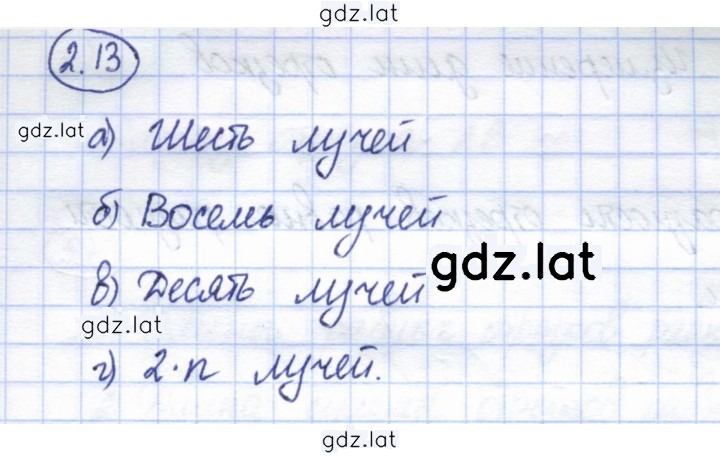 gdz.lat
2.13
gdz.lat
а) Шесть лучей
б) Восемь лучей
gdz.lat
в) Десять лучей
gdz.lat
г) 2·n лучей.
gdz.lat